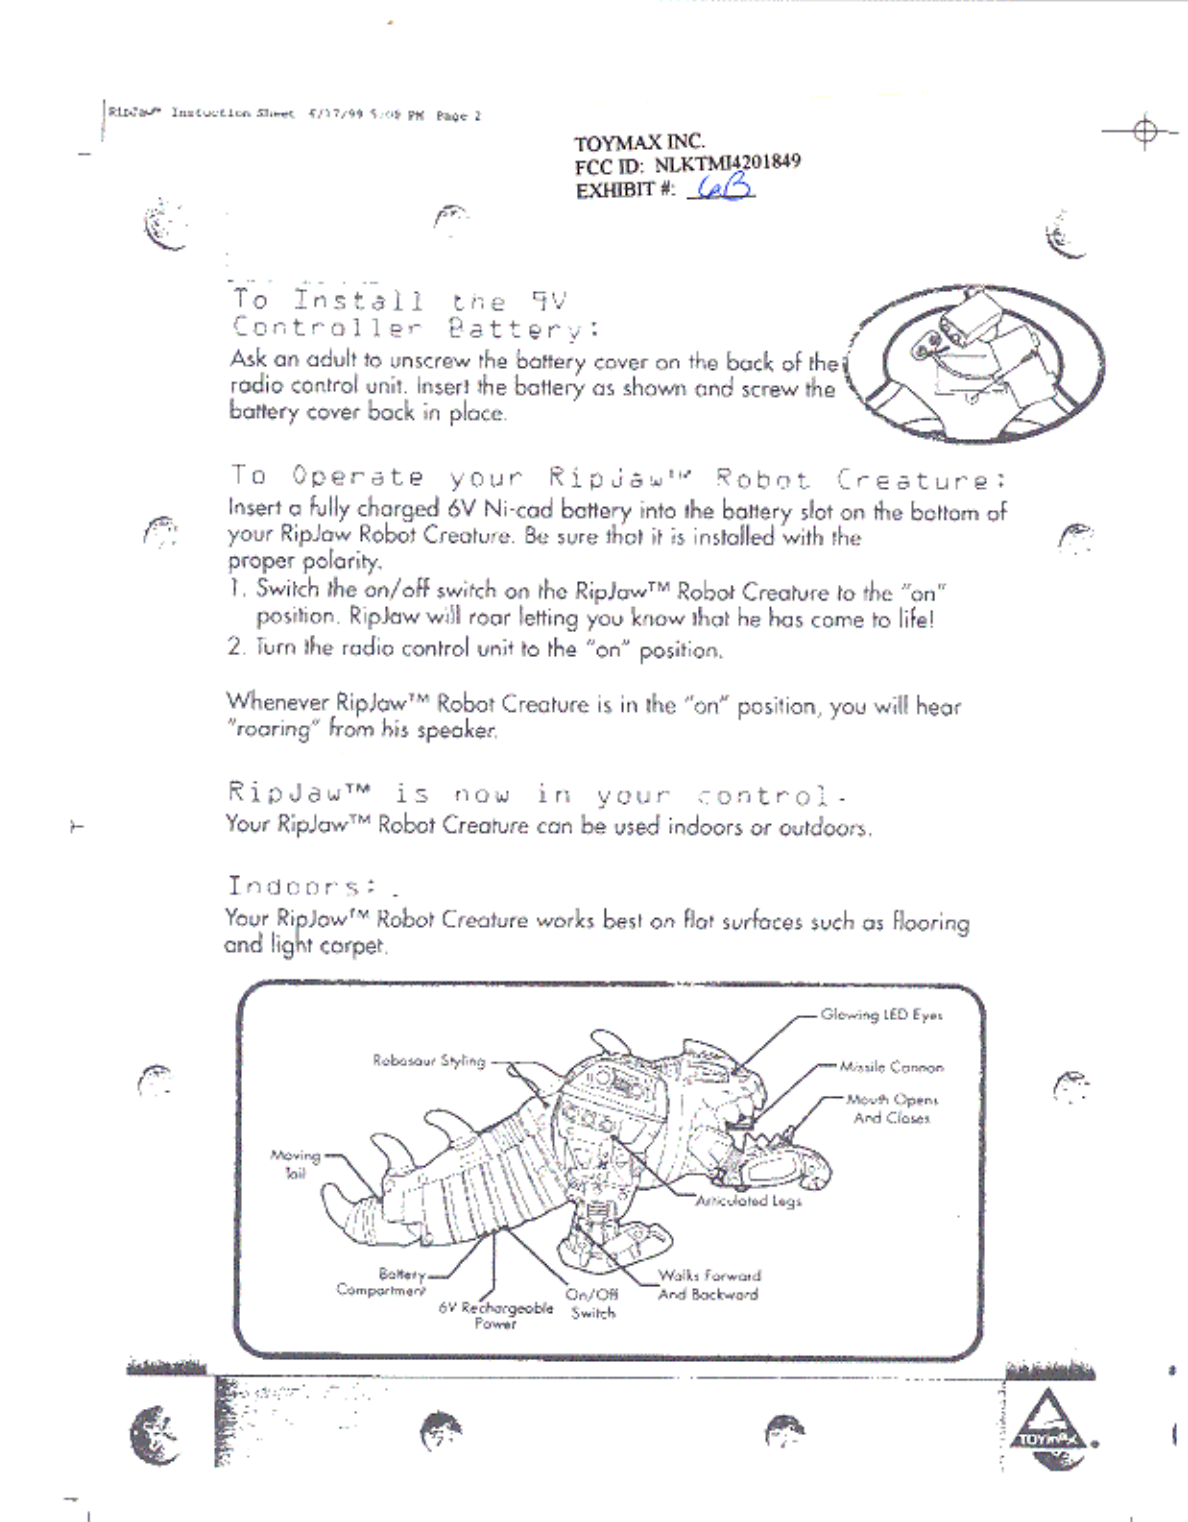 RipJaw™ Instuction Sheet 6/17/99 5:09 PM Page 2
TOYMAX INC.
FCC ID: NLKTMI4201849
EXHIBIT #: 6B
To Install the 9V
Controller Battery:
Ask an adult to unscrew the battery cover on the back of the
radio control unit. Insert the battery as shown and screw the
battery cover back in place.
To Operate your Ripjaw™ Robot Creature:
Insert a fully charged 6V Ni-cad battery into the battery slot on the bottom of
your RipJaw Robot Creature. Be sure that it is installed with the
proper polarity.
1. Switch the on/off switch on the RipJaw™ Robot Creature to the "on"
position. RipJaw will roar letting you know that he has come to life!
2. Turn the radio control unit to the "on" position.
Whenever RipJaw™ Robot Creature is in the "on" position, you will hear
"roaring" from his speaker.
RipJaw™ is now in your control.
Your RipJaw™ Robot Creature can be used indoors or outdoors.
Indoors:
Your RipJaw™ Robot Creature works best on flat surfaces such as flooring
and light carpet.
Glowing LED Eyes
Robosaur Styling
Missile Cannon
Mouth Opens
And Closes
Moving
Tail
Articulated Legs
Battery
Compartment
6V Rechargeable
Power
On/Off
Switch
Walks Forward
And Backward
TOYMAX